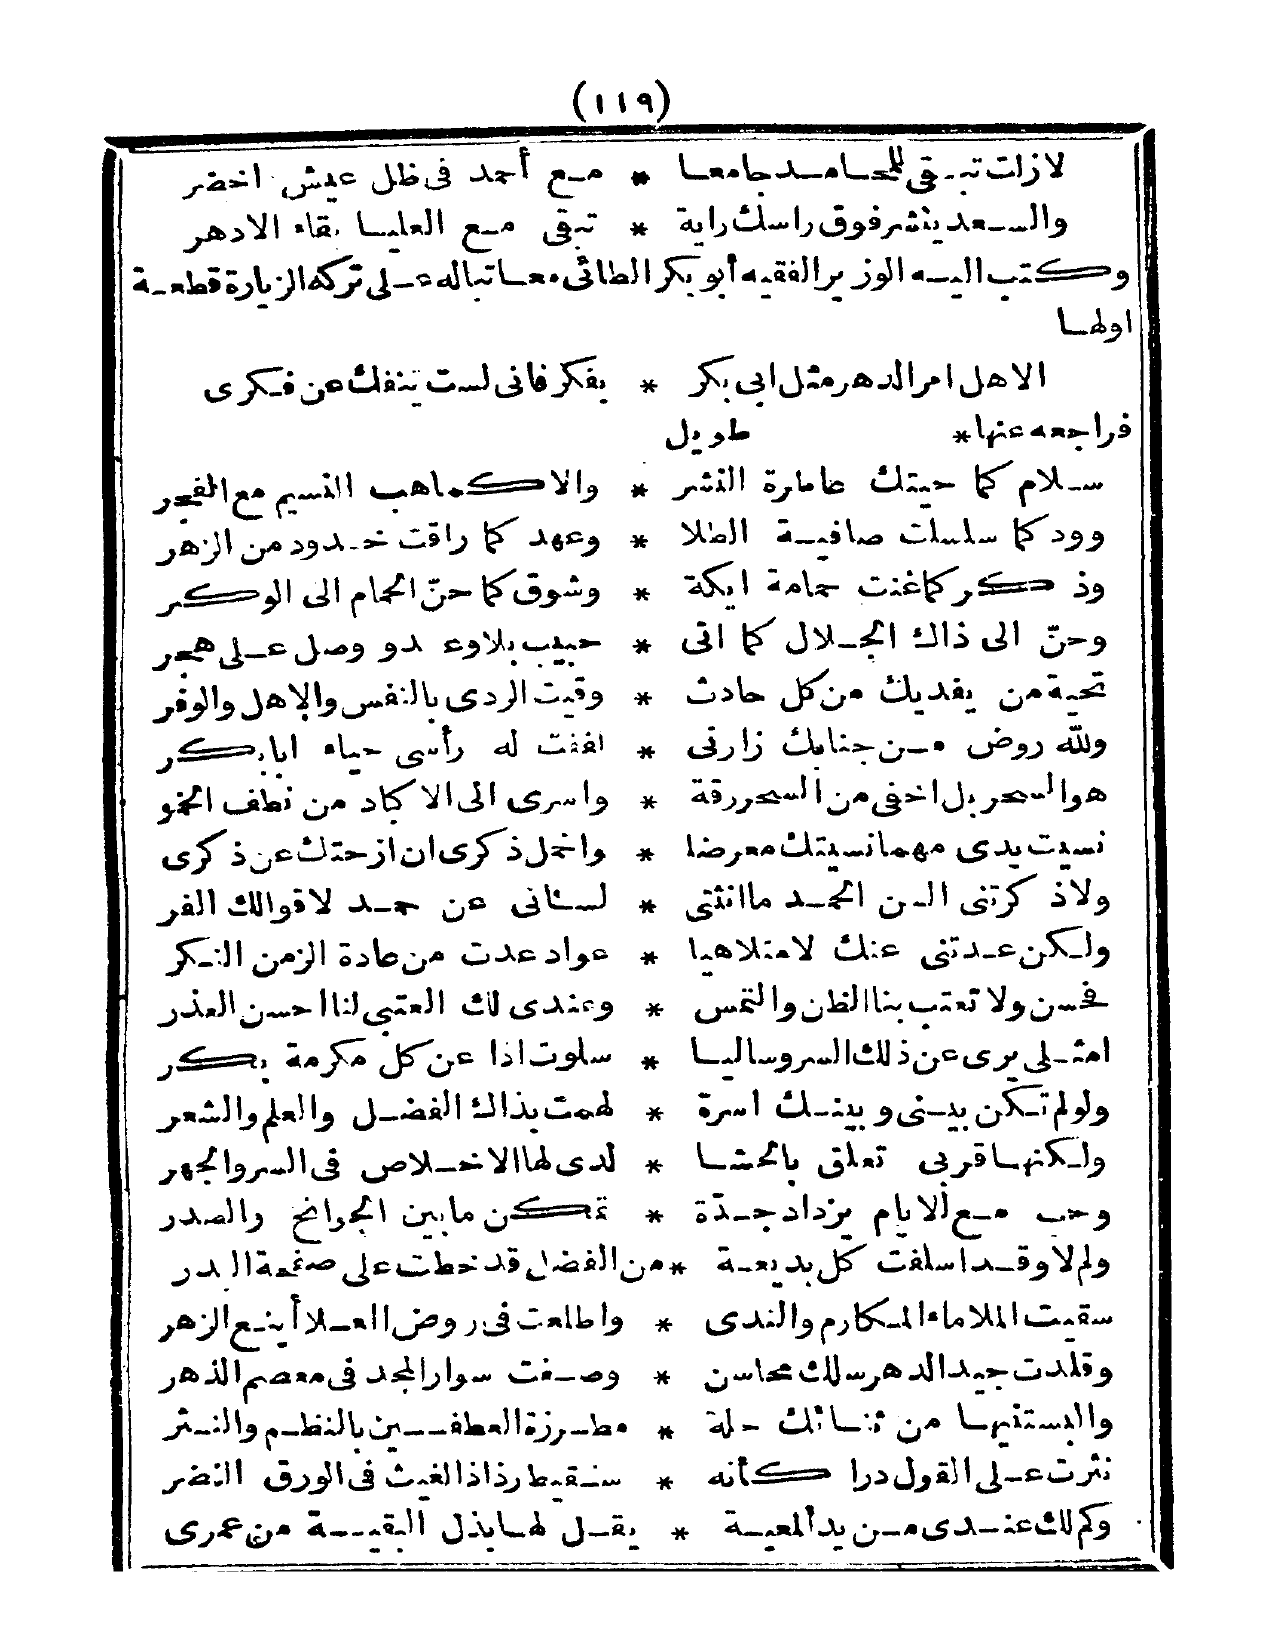 (١١٩)
لازلت تبقى للمحامد جامعا * مع أحمد فى ظل عيش اخضر
والسعد ينشر فوق راسك راية * تبقى مع العليا بقاء الادهر
وكتب اليه الوزير الفقيه أبو بكر الطائى معاتباله على تركه الزيارة قطعة
اولها
الاهل امرالدهر مثل ابى بكر * يفكر فانى لست ينفك عن فكرى
فراجعه عنها * طويل
سلام كما حيتك عاطرة النشر * والا كما هب النسيم مع الفجر
وود كما سلسلت صافية الطلا * وعهد كما راقت خدود من الزهر
وذكر كما غنت حمامة ايكة * وشوق كما حنّ الحمام الى الوكر
وحنّ الى ذاك الجلال كما اتى * حبيب بلا وعد ووصل على هجر
تحية من يفديك من كل حادث * وقيت الردى بالنفس والاهل والوفر
ولله روض من جنابك زارنى * لفنت له رأسى حياء ابابكر
هو السحر بل اخفى من السحر رقة * واسرى الى الاكاد من نطف الخمو
نسيت يدى مهما نسيتك معرضا * واخمل ذكرى ان ازحتك عن ذكرى
ولاذكرتنى الـن المجد ما انثنى * لسانى عن حمد لاقوالك الغر
ولكن عدتنى عنك لامتلاهيا * عواد عدت من عادة الزمن النكر
فحسن ولا تعتب بنا الظن والتمس * وعندى لك العتبى لنا احسن العذر
امثلى يرى عن ذلك السروساليا * سلوت اذا عن كل مكرمة بكر
ولولم تكن بينى وبينك اسرة * لهمت بذاك الفضل والعلم والشعر
ولكنها قربى تعلق بالحشا * لدى لها الاخلاص فى السر والجهر
وحب مع الايام يزداد جدة * تمكن مابين الجوانح والصدر
ولم لا وقد اسلفت كل بديعة * من الفضل قد خطت على صفحة البدر
سقيت الملا ماء المكارم والندى * واطلعت فى روض العلا أينع الزهر
وقلدت جيد الدهر سلك محاسن * وصغت سوار المجد فى معصم الدهر
والبستنيها من ثنائك حلة * مطرزة العطفين بالنظم والنثر
نثرت على القول درا كأنه * سقيط رذاذ الغيث فى الورق النضر
وكم لك عندى من يد ألمعية * يقل لها بذل البقية من عمرى